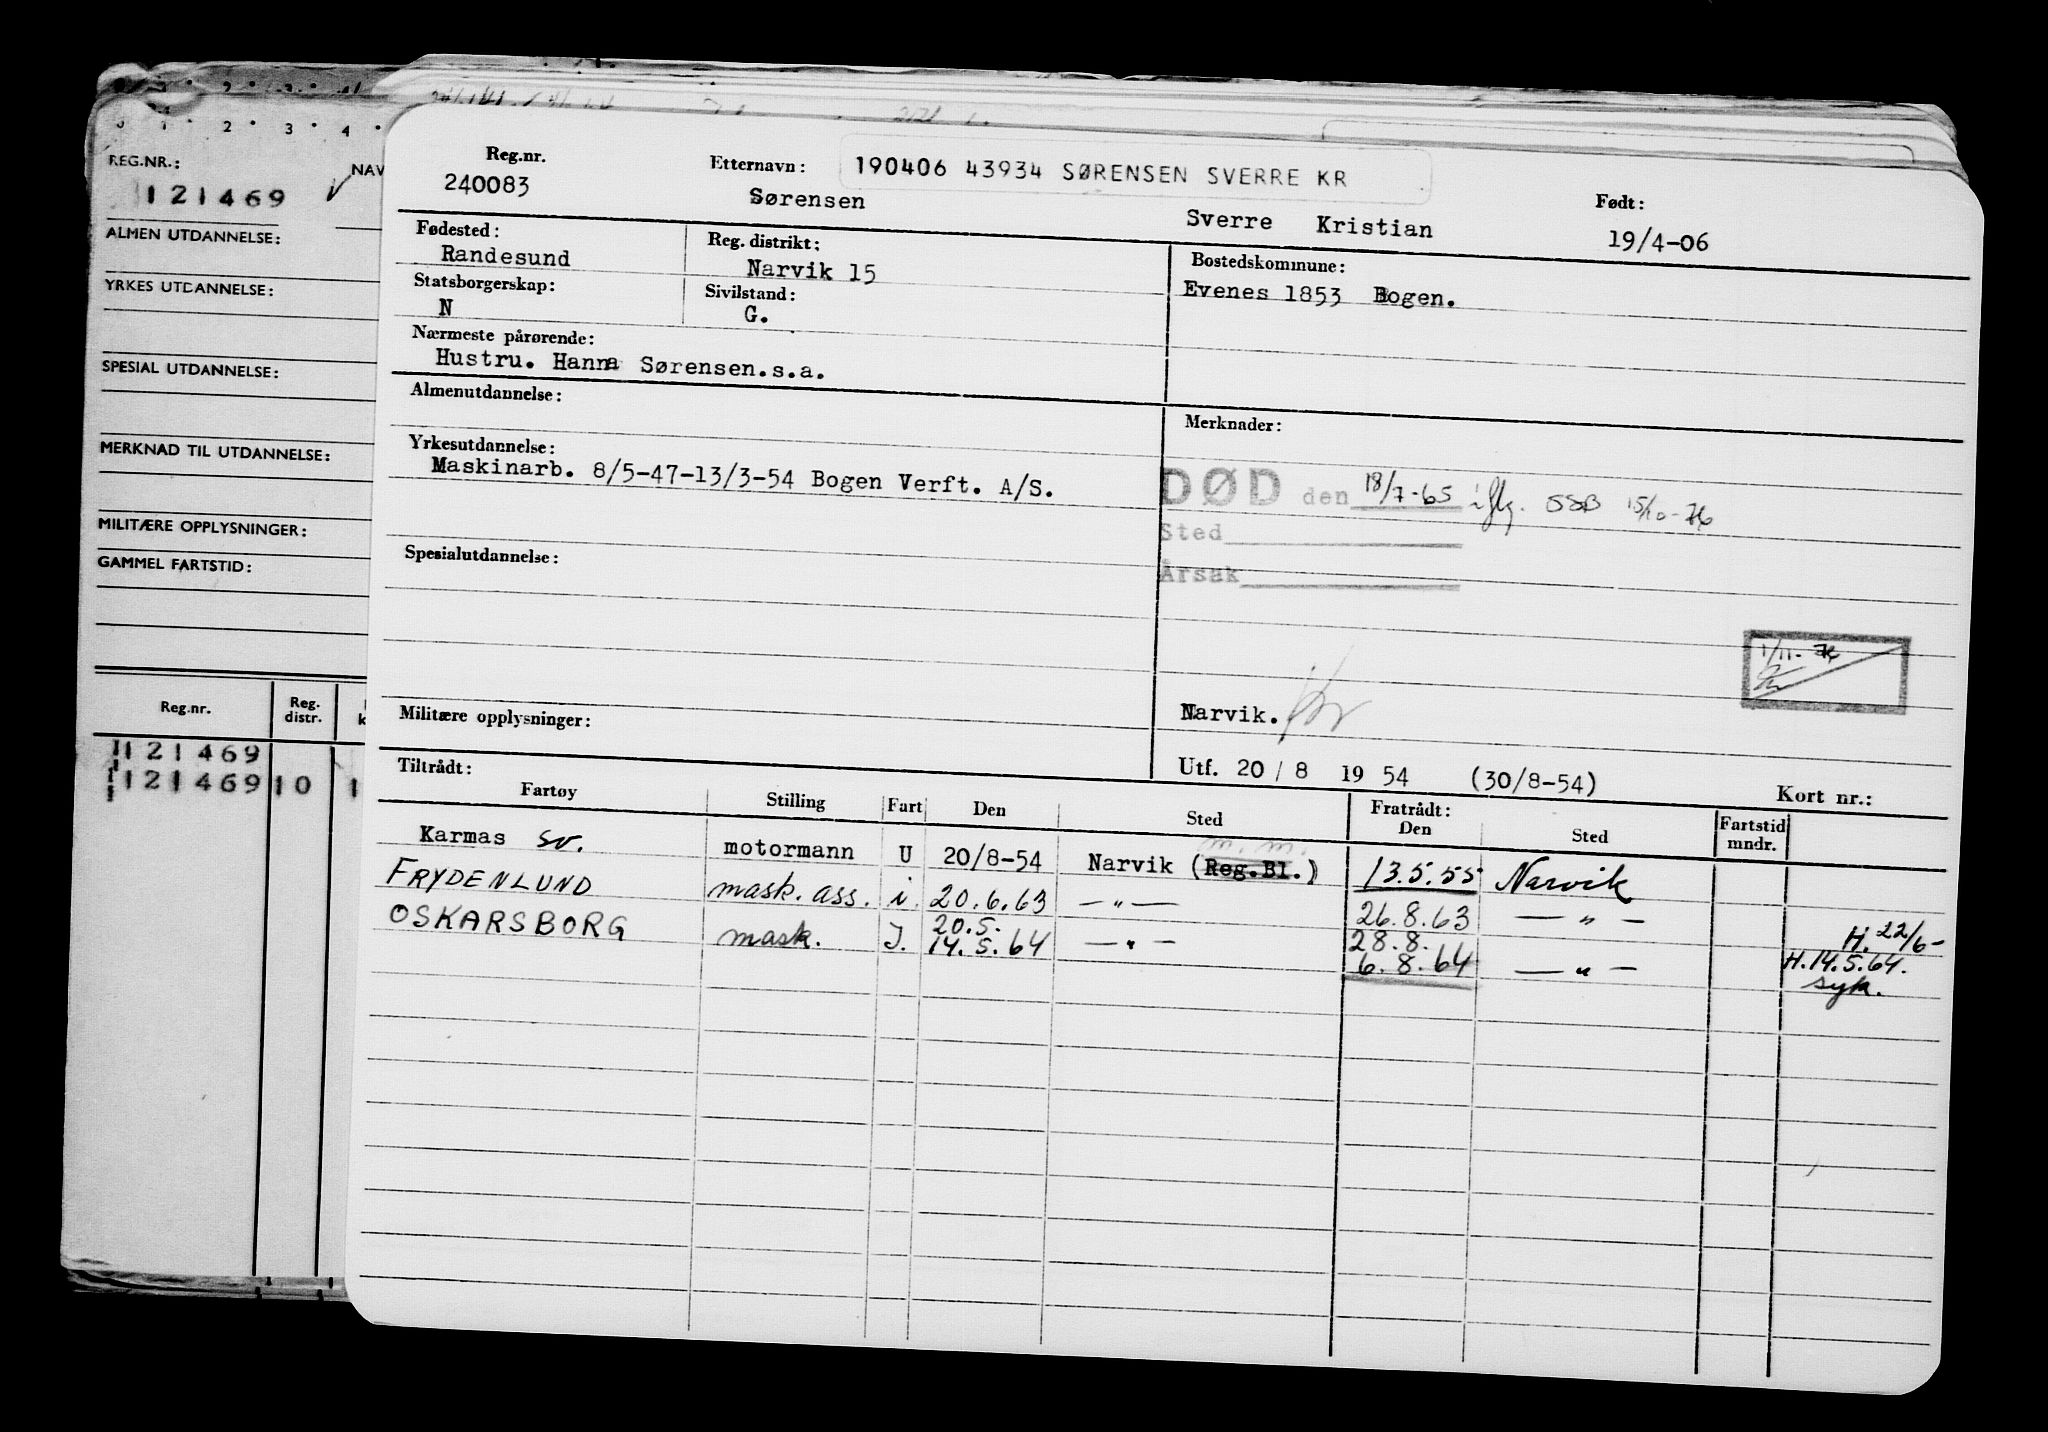 0 1 2 3 4
REG.NR.: NAV
121469
ALMEN UTDANNELSE:
YRKES UTDANNELSE:
SPESIAL UTDANNELSE:
MERKNAD TIL UTDANNELSE:
MILITÆRE OPPLYSNINGER:
GAMMEL FARTSTID:
Reg.nr. Reg. distr. k
121469
121469 10 1
Reg.nr. Etternavn: 190406 43934 SØRENSEN SVERRE KR Født:
240083 Sørensen Sverre Kristian 19/4-06
Fødested: Reg. distrikt: Bostedskommune:
Randesund Narvik 15 Evenes 1853 Bogen.
Statsborgerskap: Sivilstand:
N G.
Nærmeste pårørende:
Hustru. Hanna Sørensen.s.a.
Almenutdannelse: Merknader:
Yrkesutdannelse:
Maskinarb. 8/5-47-13/3-54 Bogen Verft. A/S.
DØD den 18/7-65 iflg. SSB 15/10-76
Sted
Årsak
Spesialutdannelse:
1/11-76
Militære opplysninger: Narvik.
Utf. 20/8 1954 (30/8-54) Kort nr.:
Tiltrådt: Fratrådt:
Fartøy Stilling Fart Den Sted Den Sted Fartstid mndr.
Karmas sv. motormann U 20/8-54 Narvik (Reg.Bl.) m.m. 13.5.55 Narvik
FRYDENLUND mask. ass. i. 20.6.63 — " — 26.8.63 — " — H. 22/6-
OSKARSBORG mask. I. 20.5. 14.5.64 — " — 28.8. 6.8.64 — " — H. 14.5.64.
syk.